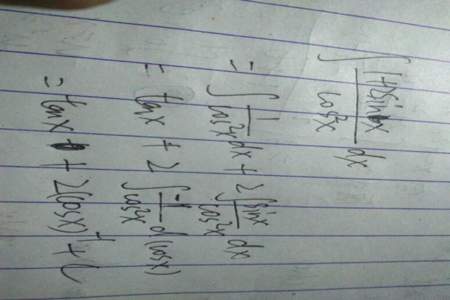 ∫ (1+2sinx)/(cos²x) dx
= ∫ 1/(cos²x) dx + 2∫ sinx/(cos²x) dx
= tanx + 2∫ -1/(cos²x) d(cosx)
= tanx + 2(cosx)⁻¹ + C